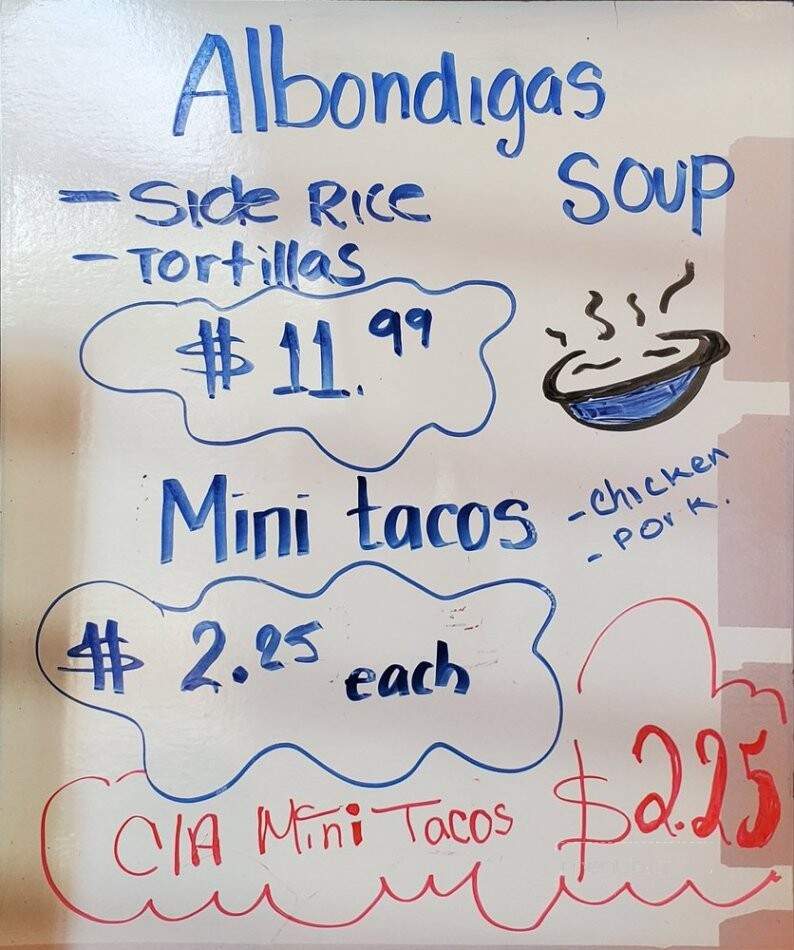 Albondigas
soup
- Side Rice
- Tortillas
$ 11.99
Mini tacos
- chicken
- Pork.
$ 2.25 each
C/A Mini Tacos $2.25